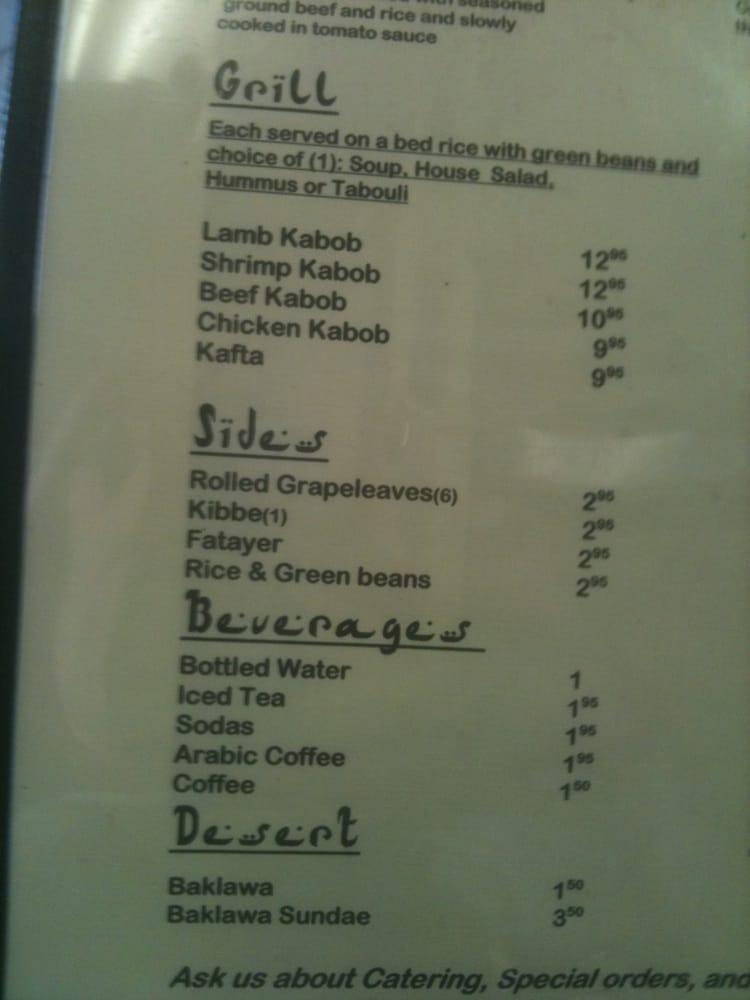 seasoned
ground beef and rice and slowly
cooked in tomato sauce
Grill
Each served on a bed rice with green beans and
choice of (1): Soup, House Salad,
Hummus or Tabouli
Lamb Kabob 12⁹⁵
Shrimp Kabob 12⁹⁵
Beef Kabob 10⁹⁵
Chicken Kabob 9⁹⁵
Kafta 9⁹⁵
Sides
Rolled Grapeleaves(6) 2⁹⁵
Kibbe(1) 2⁹⁵
Fatayer 2⁹⁵
Rice & Green beans 2⁹⁵
Beverages
Bottled Water 1
Iced Tea 1⁹⁵
Sodas 1⁹⁵
Arabic Coffee 1⁹⁵
Coffee 1⁵⁰
Desert
Baklawa 1⁵⁰
Baklawa Sundae 3⁵⁰
Ask us about Catering, Special orders, and